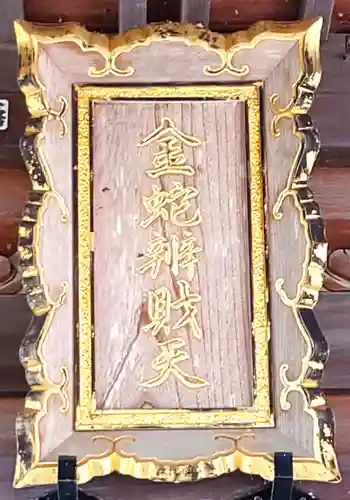 金蛇辨財天